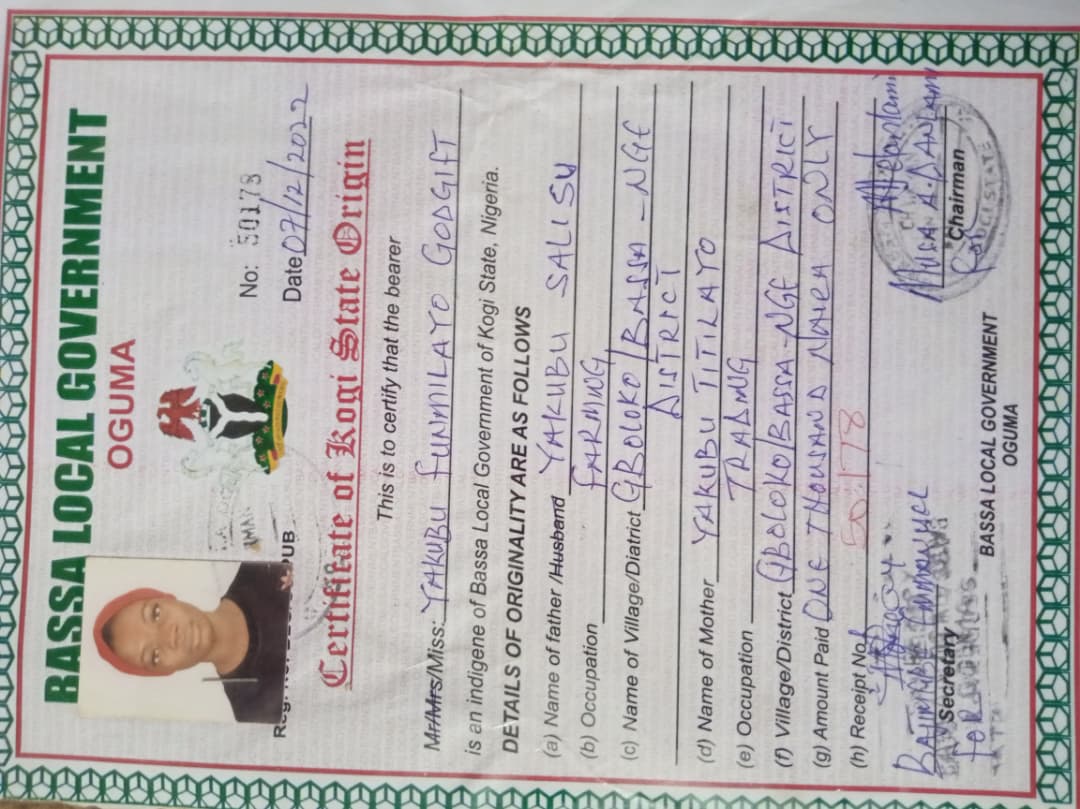 BASSA LOCAL GOVERNMENT
OGUMA
No: 50178
Date 07/12/2022
PUB
Certificate of Kogi State Origin
This is to certify that the bearer
Mr/Mrs/Miss: YAKUBU FUNMILAYO GODGIFT
is an indigene of Bassa Local Government of Kogi State, Nigeria.
DETAILS OF ORIGINALITY ARE AS FOLLOWS
(a) Name of father /Husband YAKUBU SALISU
(b) Occupation FARMING
(c) Name of Village/Diatrict GBOLOKO/BASSA-NGE
DISTRICT
(d) Name of Mother YAKUBU TITILAYO
(e) Occupation TRADING
(f) Village/District GBOLOKO/BASSA-NGE DISTRICT
(g) Amount Paid ONE THOUSAND NAIRA ONLY
(h) Receipt No. 50178
MUSA A. DANLAMI
Secretary
Chairman
FOR
BASSA LOCAL GOVERNMENT
OGUMA